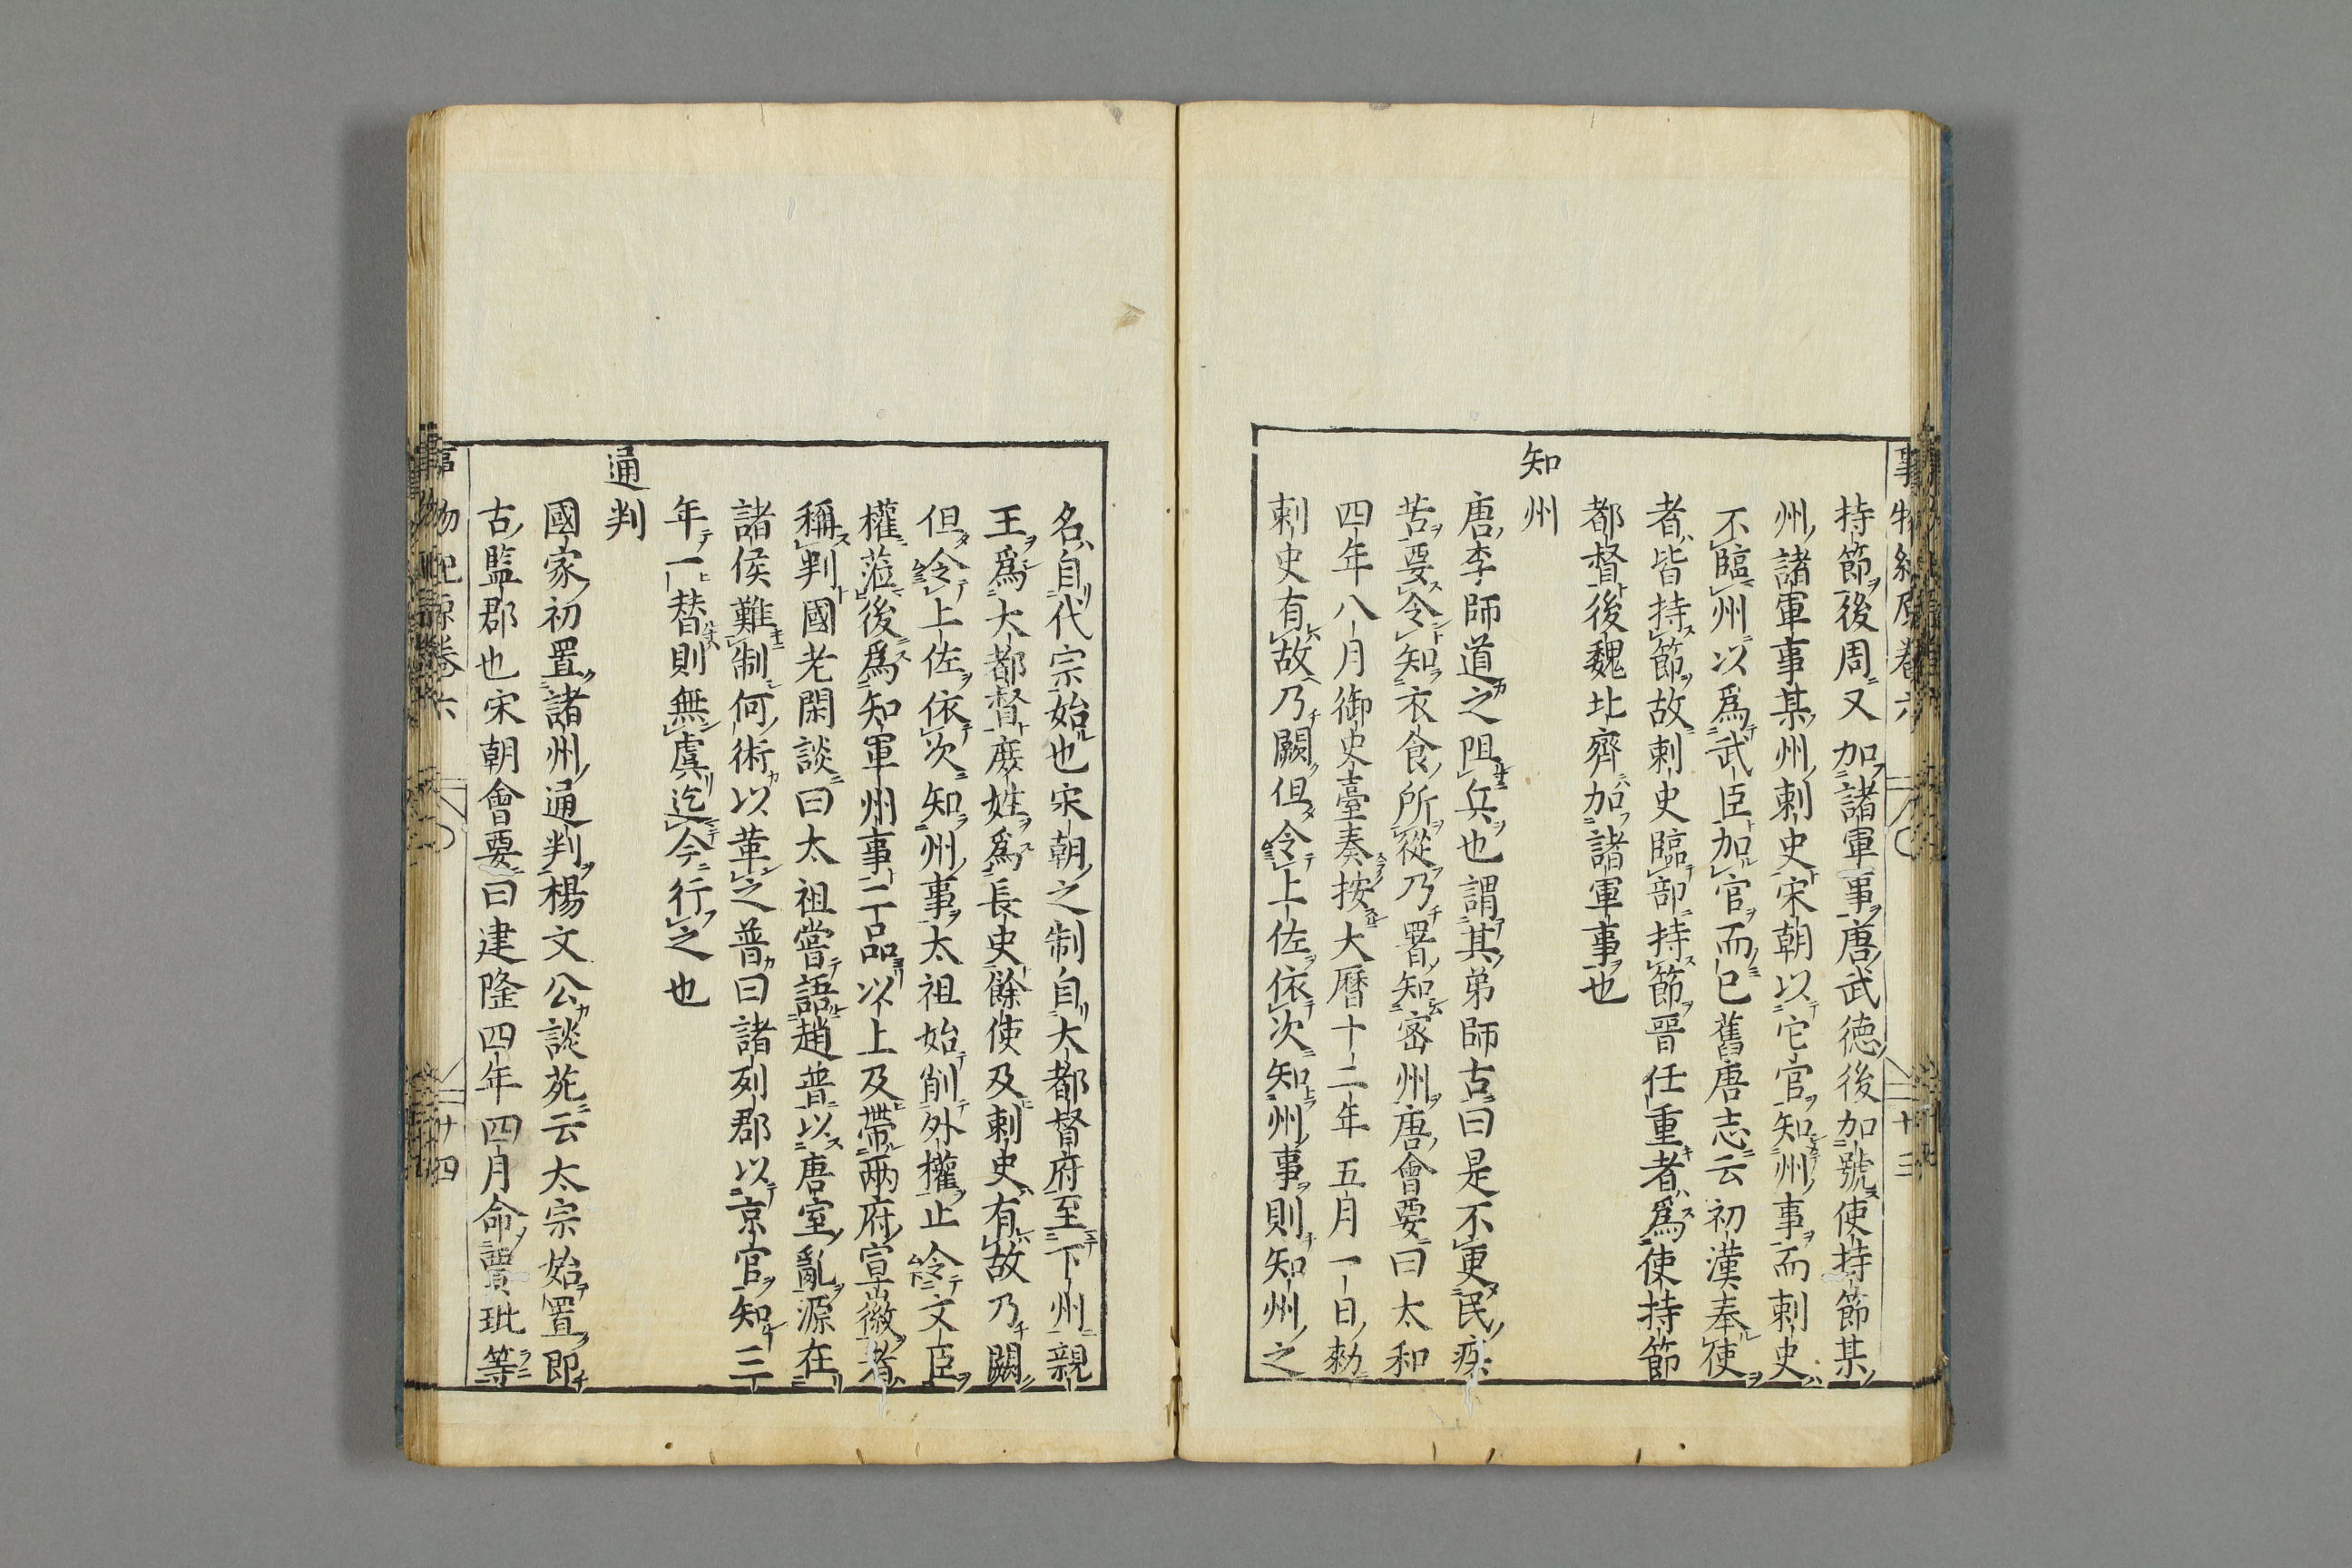 事物紀原卷六 十三
持節後周又加諸軍事唐武德後加號使持節某
州諸軍事某州刺史宋朝以它官知州事而刺史
不臨州以爲武臣加官而已舊唐志云初漢奉使
者皆持節故刺史臨部持節晉任重者爲使持節
都督後魏北齊加諸軍事也
知州
唐李師道之阻兵也謂其弟師古曰是不更民疾
苦要令知衣食所從乃署知密州唐會要曰太和
四年八月御史臺奏按大曆十二年五月一日勑
刺史有故乃闕但令上佐依次知州事則知州之
名自代宗始也宋朝之制自大都督府至下州親
王爲大都督庶姓爲長史餘使及刺史有故乃闕
但令上佐依次知州事太祖始削外權止令文臣
權蒞後爲知軍州事二品以上及帶兩府宣徽者
稱判國老閑談曰太祖嘗語趙普以唐室亂源在
諸侯難制何術以革之普曰諸列郡以京官知三
年一替則無虞迄今行之也
通判
國家初置諸州通判楊文公談苑云太宗始置即
古監郡也宋朝會要曰建隆四年四月命賈玭等
事物紀原卷六 十四